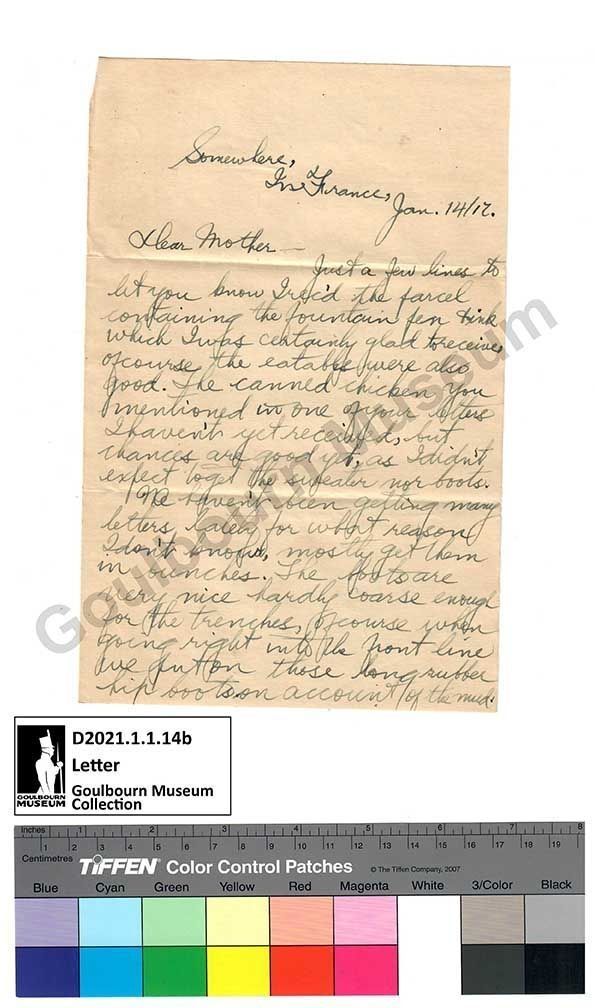 Somewhere,
In France,
Jan. 14/17.
Dear Mother —
Just a few lines to
let you know I rec'd the parcel
containing the fountain pen & ink
which I was certainly glad to receive,
ofcourse the eatables were also
good. The canned chicken you
mentioned in one of your letters
I haven't yet received, but
chances are good yet, as I didn't
expect to get the sweater nor boots.
We haven't been getting many
letters lately for what reason
I don't know, mostly get them
in bunches. The boots are
very nice hardly coarse enough
for the trenches, ofcourse when
going right into the front line
we put on those long rubber
hip boots on account of the mud.
Goulbourn Museum
D2021.1.1.14b
Letter
Goulbourn Museum
Collection
GOULBOURN
MUSEUM
Inches 1 2 3 4 5 6 7 8
Centimetres 1 2 3 4 5 6 7 8 9 10 11 12 13 14 15 16 17 18 19
TIFFEN Color Control Patches © The Tiffen Company, 2007
Blue Cyan Green Yellow Red Magenta White 3/Color Black